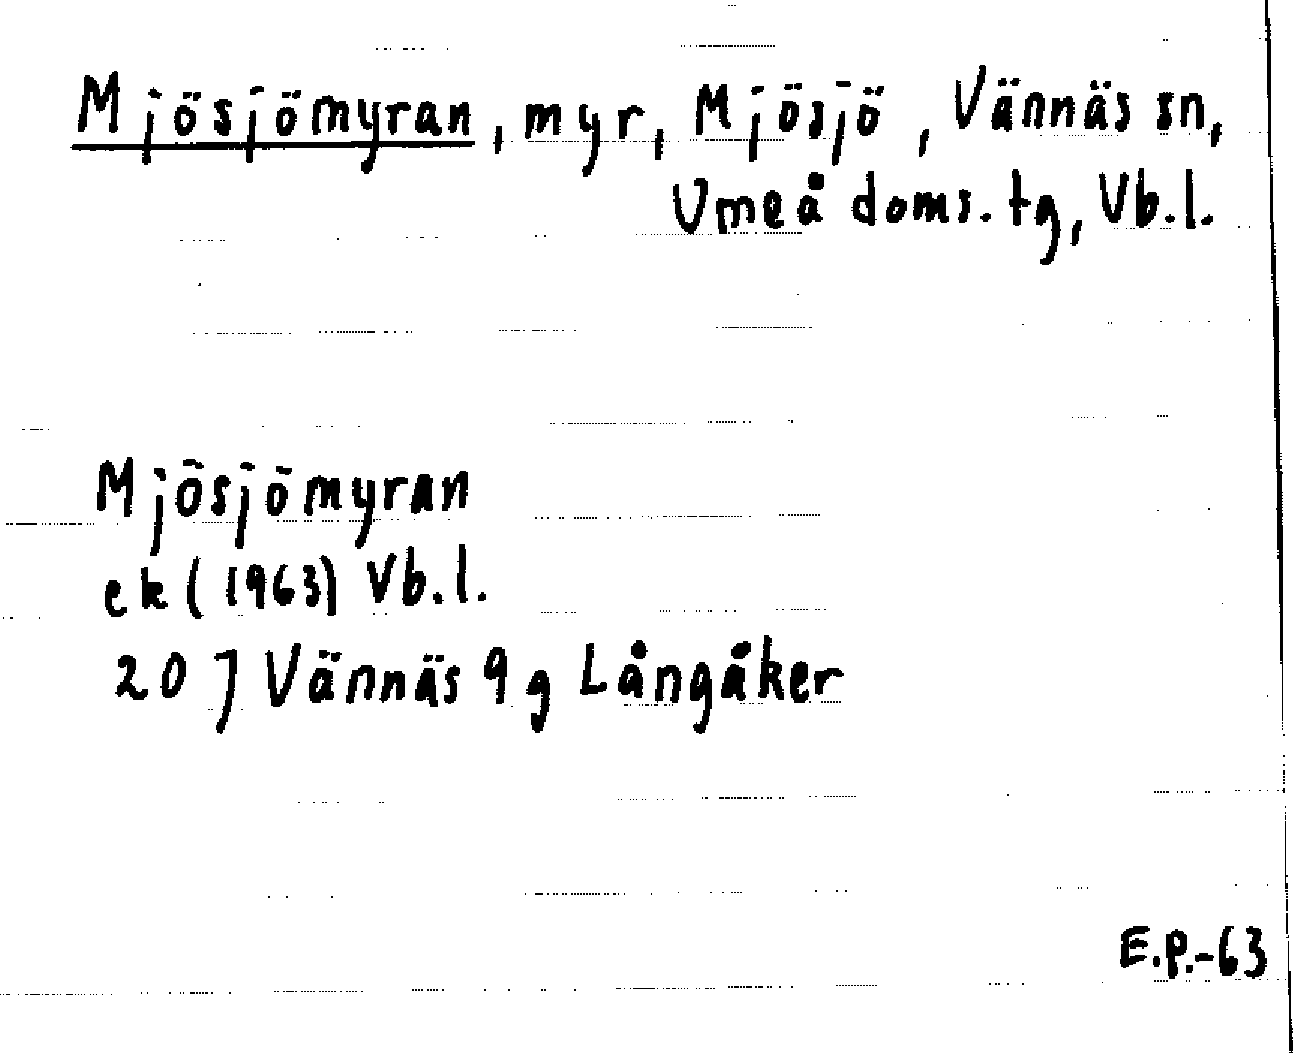 Mjösjömyran, myr, Mjösjö, Vännäs sn,
Umeå doms. tg, Vb.l.
Mjösjömyran
ek (1963) Vb.l.
20 J Vännäs 9 g Långåker
E.P.-63